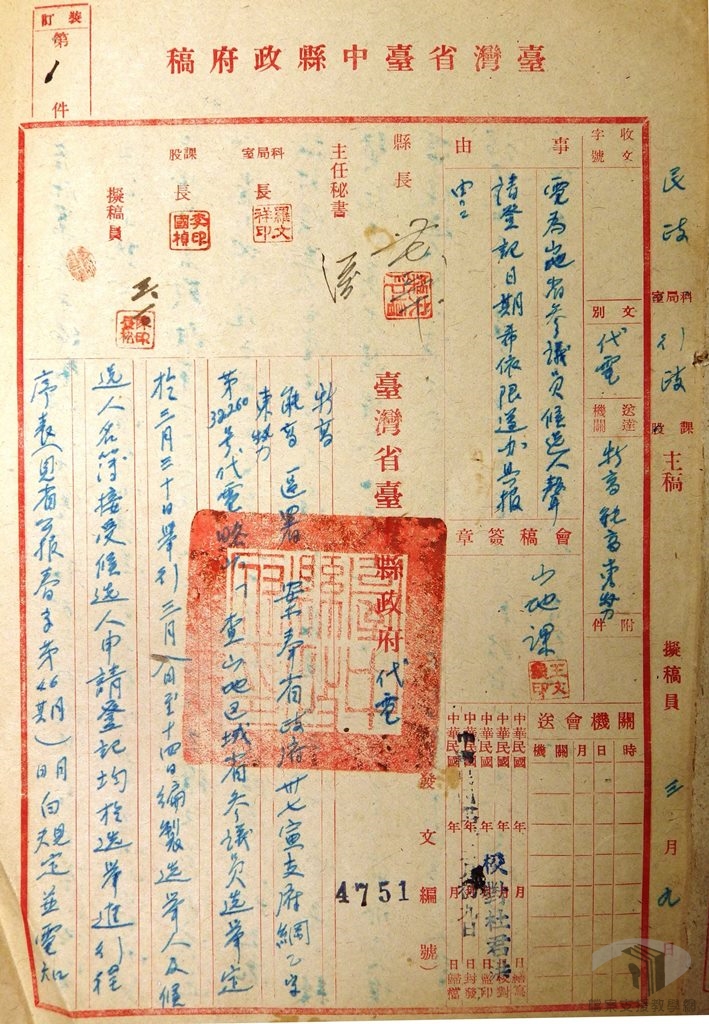 裝訂
第1件
臺灣省臺中縣政府稿
民政科局室行政課股主稿 擬稿員 三月九日
收文字號
文別 代電
送達機關 新高能高東勢
附件
事由
電為山地省參議員候選人聲
請登記日期希依限遵办具報
會稿簽章
山地課
會送機關
機關 月 日 時
縣長
主任秘書
科局室長 羅文祥印
課股長
國楨
擬稿員
中華民國 年 月 日擬稿
中華民國 年 月 日校對
中華民國 年 月 日蓋印
中華民國 年 月 日封發
中華民國 年 月 日歸檔
校對杜君
發文編號
4751
臺灣省臺 縣政府代電
新高
能高 區署 案奉省政府卅七寅支府綱乙字
東勢
第32260號代電略以「查山地区域省參議員選舉定
於三月三十日舉行三月八日至十四日編製選舉人及候
選人名簿接受候選人申請登記均於選舉進行程
序表(見省公報春字第46期)明白規定並電知